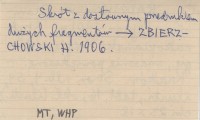 Skrót z dosłownym przedrukiem
dużych fragmentów → ZBIERZ-
CHOWSKI H. 1906.
MT, WHP